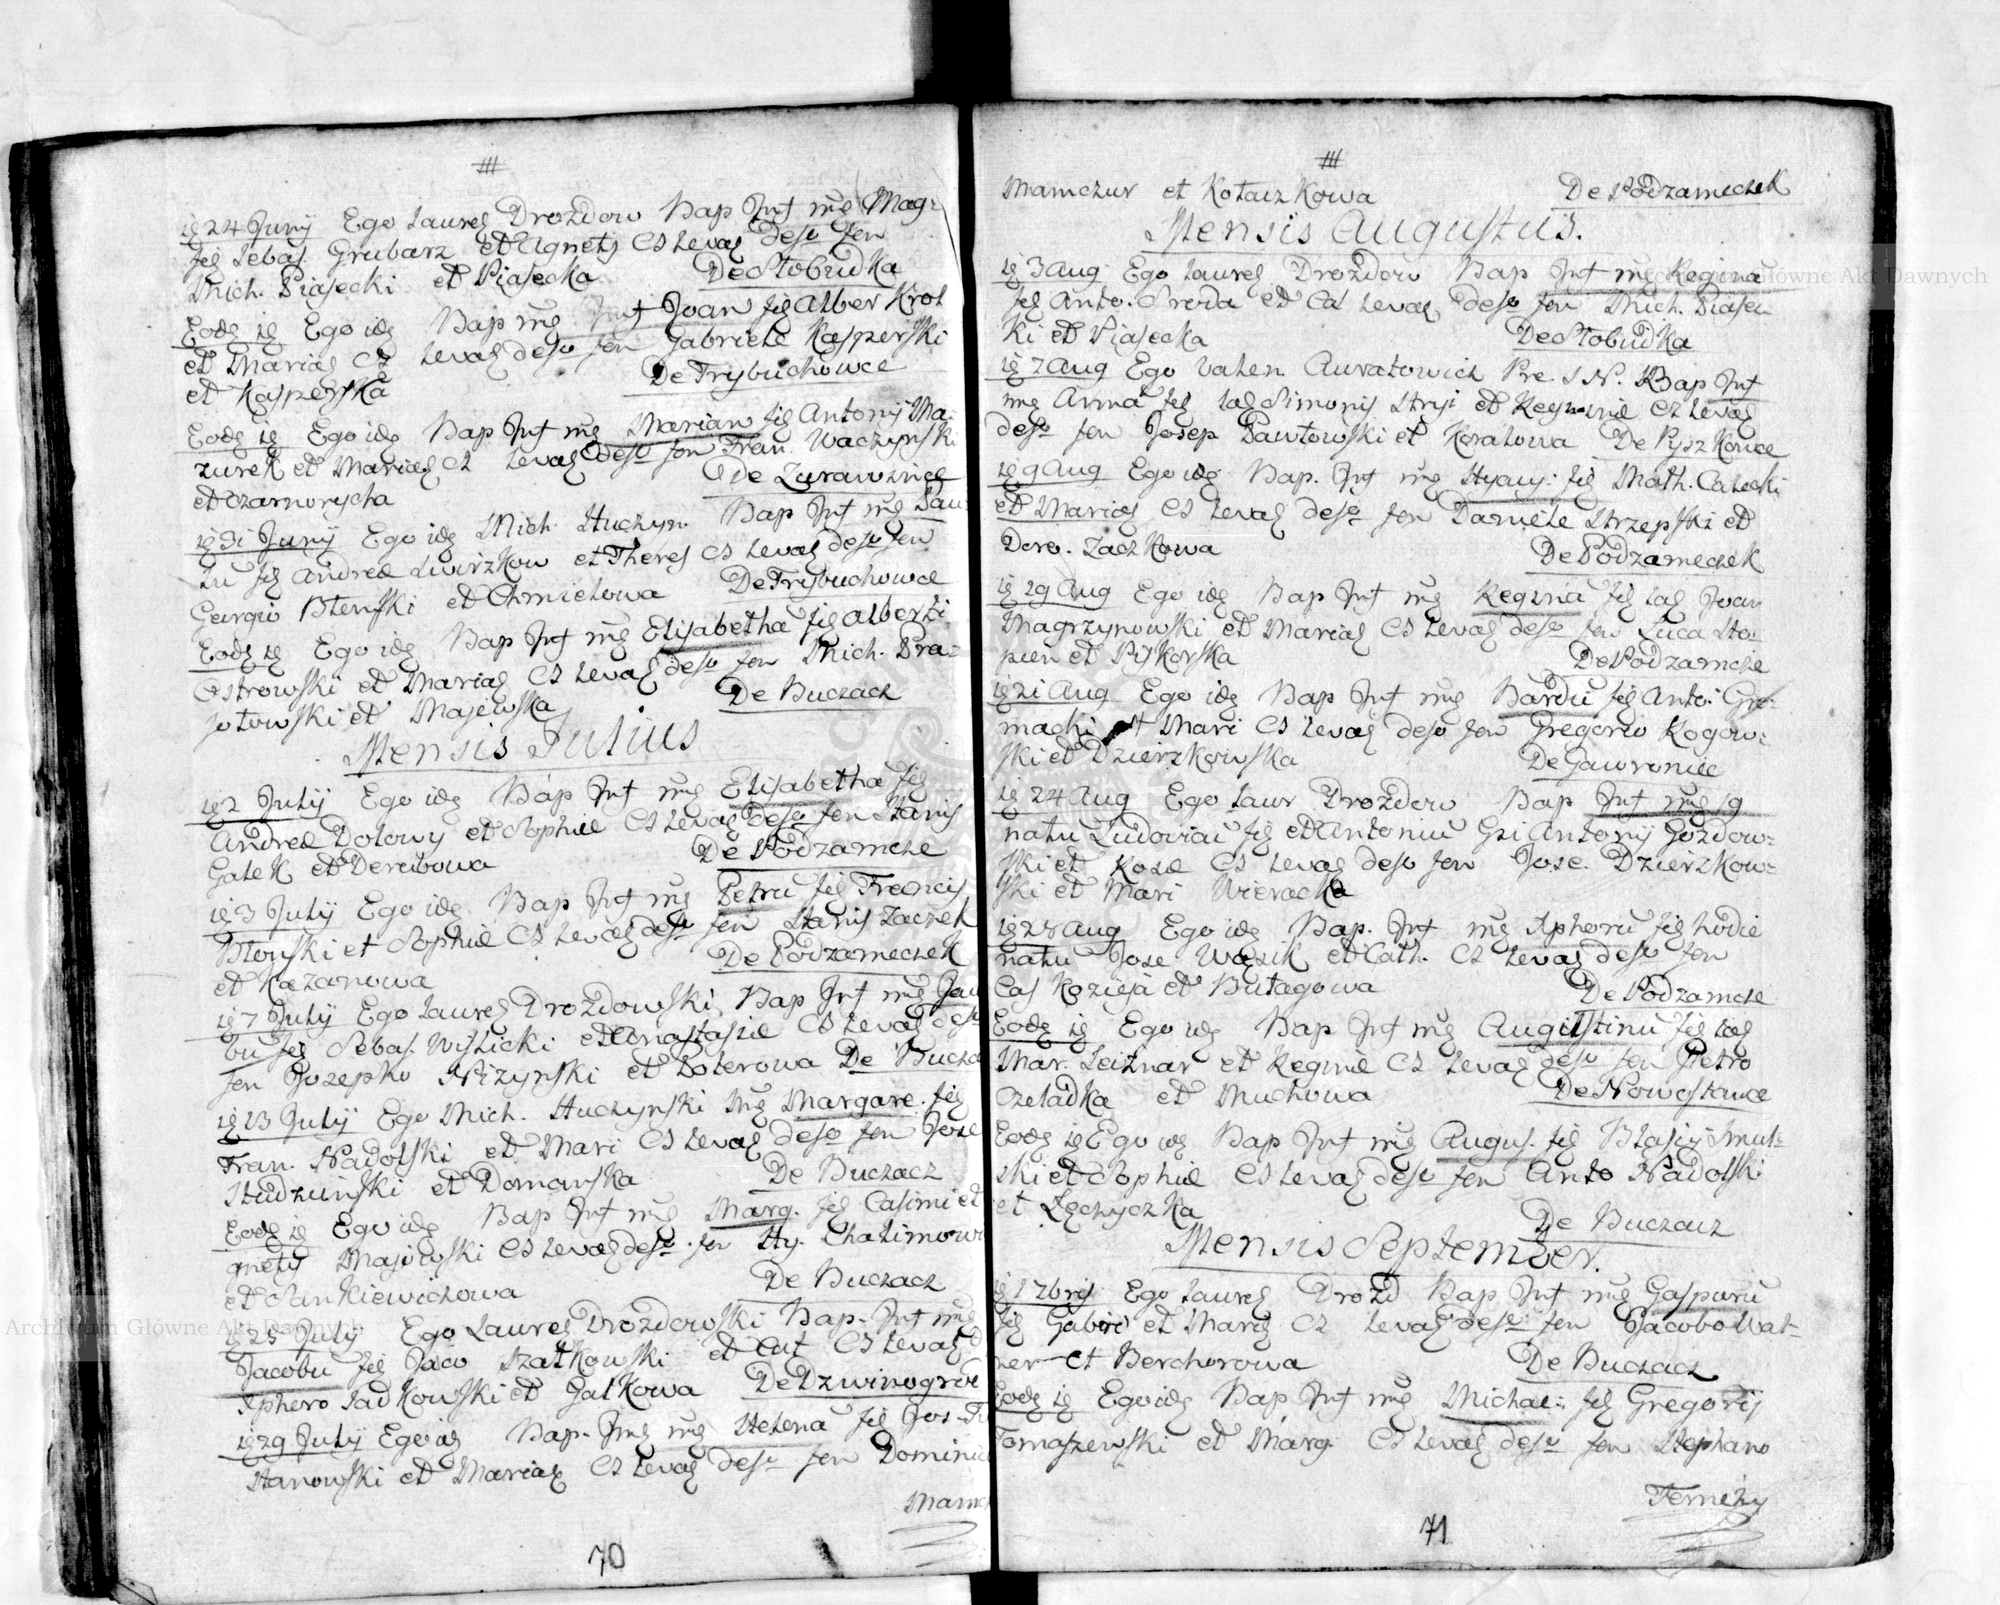 #
ię 24 Junij Ego Laureę Drozdow Bap Jnf nię Mag:
fię Sebas. Grubarz et Agnetis CS Levaę deso fen
Mich. Piasecki et Piasecka De Stobudka
Eodę ię Ego idę Bap nię Jnf Joan fię Alber Krol
et Mariaę CS Levaę deso fen Gabriele Kasperski
et Kasperska De Trybuchowce
Eodę ię Ego idę Bap Jnf nię Marian fię Antonij Ma:
zurek et Mariaę CS Levaę deso fen Fran. Waczynski
et Czarnorycha De Zurawince
ię 31 Junij Ego idę Mich. Huczyn. Bap Jnf nię Pau:
lu fię Andreæ Swirzkow et Theres CS Levaę deso fen
Georgio Blenski et Chmielowa De Trybuchowce
Eodę ię Ego idę Bap Jnf nię Elisabetha fię Alberti
Ostrowski et Mariaę CS Levaę deso fen Mich. Pra:
sotowski et Majewska De Buczacz
Mensis Julius
ię 2 Julij Ego idę Bap Jnf nię Elisabetha fię
Andreæ Dolowy et Sophiæ CS Levaę deso fen Stanis
Galek et Derewowa De Podzamcze
ię 3 Julij Ego idę Bap Jnf nię Petru fię Francis
Blonski et Sophiæ CS Levaę deso fen Stanis Zaczek
et Kazanowa De Podzameczek
ię 7 Julij Ego Laureę Drozdowski Bap Jnf nię Jac
bu fię Sebas. Wislicki et Anastasiæ CS Levaę deso
fen Jozepho Nizynski et Polerowa De Bucza
ię 13 Julij Ego Mich. Huczynski nię Margare. fię
Fran. Nadolski et Mari CS Levaę deso fen Jose
Studzinski et Domanska De Buczacz
Eodę ię Ego idę Bap Jnf nię Marg. fię Casimi et
gnetis Majewski CS Levaę deso fen Hy. Chalimow
et Sankiewichowa De Buczacz
ię 25 Julij Ego Laureę Drozdowski Bap. Jnf nię
Jacobu fię Jaco Szatkowski et Cat CS Levaę d
Xphero Sadkowski et Galkowa De Dzwinogrod
ię 29 Julij Ego idę Bap. Jnf nię Helena fię Jos.
Stanowski et Mariaę CS Levaę deso fen Domini
Mamc
70
#
Mamczur et Kotaczkowa De Podzameczek
Mensis Augustus.
ię 3 Aug Ego Laureę Drozdow Bap Jnf nię Regina
fię Anto. Sreda et Ca Levaę deso fen Mich. Piasec
ki et Piasecka De Stobudka
ię 7 Aug Ego Valen Auratowich Pre. S N. Bap Jnf
nię Anna fię Laę Simonis Stryi et Reginæ CS Levaę
deso fen Josep Pawtowski et Koralowa De Pyszkowce
ię 9 Aug Ego idę Bap. Jnf nię Hyaci: fię Math. Calecki
et Mariaę CS Levaę deso fen Daniele Strzepski et
Doro. Zaczkowa De Podzameczek
ię 19 Aug Ego idę Bap Jnf nię Regina fię Laę Joan
Magrzynowski et Mariaę CS Levaę deso fen Luca Sto:
pien et Piskorska De Podzamcze
ię 21 Aug Ego idę Bap Jnf nię Bardu fię Anto. Gro:
macki et Mari CS Levaę deso fen Gregorio Rogow:
ski et Dzierzkowska De Gawroniec
ię 24 Aug Ego Laur Drozdow Bap Jnf nię ig
natu Ludovicu fię et Antoniu Gsi Antonij Gozdow:
ski et Rosæ CS Levaę deso fen Jose. Dzierzkow:
ski et Mari Wieracka
ię 28 Aug Ego idę Bap. Jnf nię Xpheru fię hodie
natu Jose Wąsik et Cath. CS Levaę deso fen
Cas Kozieja et Butagowa De Podzamcze
Eodę ię Ego idę Bap Jnf nię Augustinu fię Laę
Mar. Leiznar et Reginæ CS Levaę deso fen Pietro
Czeladka et Muchowa De Nowostawce
Eodę ię Ego idę Bap Jnf nię Augus. fię Blasij Smul:
ski et Sophiæ CS Levaę deso fen Anto Nadolski
et Lęchyczka De Buczacz
Mensis September.
ię 1 7bris Ego Laureę Drozd Bap Jnf nię Gasparu
fię Gabri et Mariaę CS Levaę deso fen Jacobo Wal-
ner et Berchorowa De Buczacz
Eodę ię Ego idę Bap Jnf nię Michae: fię Gregorij
Tomaszewski et Marg. CS Levaę deso fen Stephano
Ferniezy
71
Archiwum Główne Akt Dawnych
Archiwum Główne Akt Dawnych